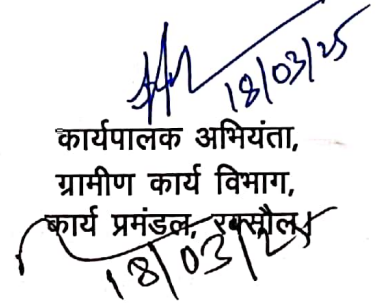 18/03/25
कार्यपालक अभियंता,
ग्रामीण कार्य विभाग,
कार्य प्रमंडल, रक्सौल।
18/03/25